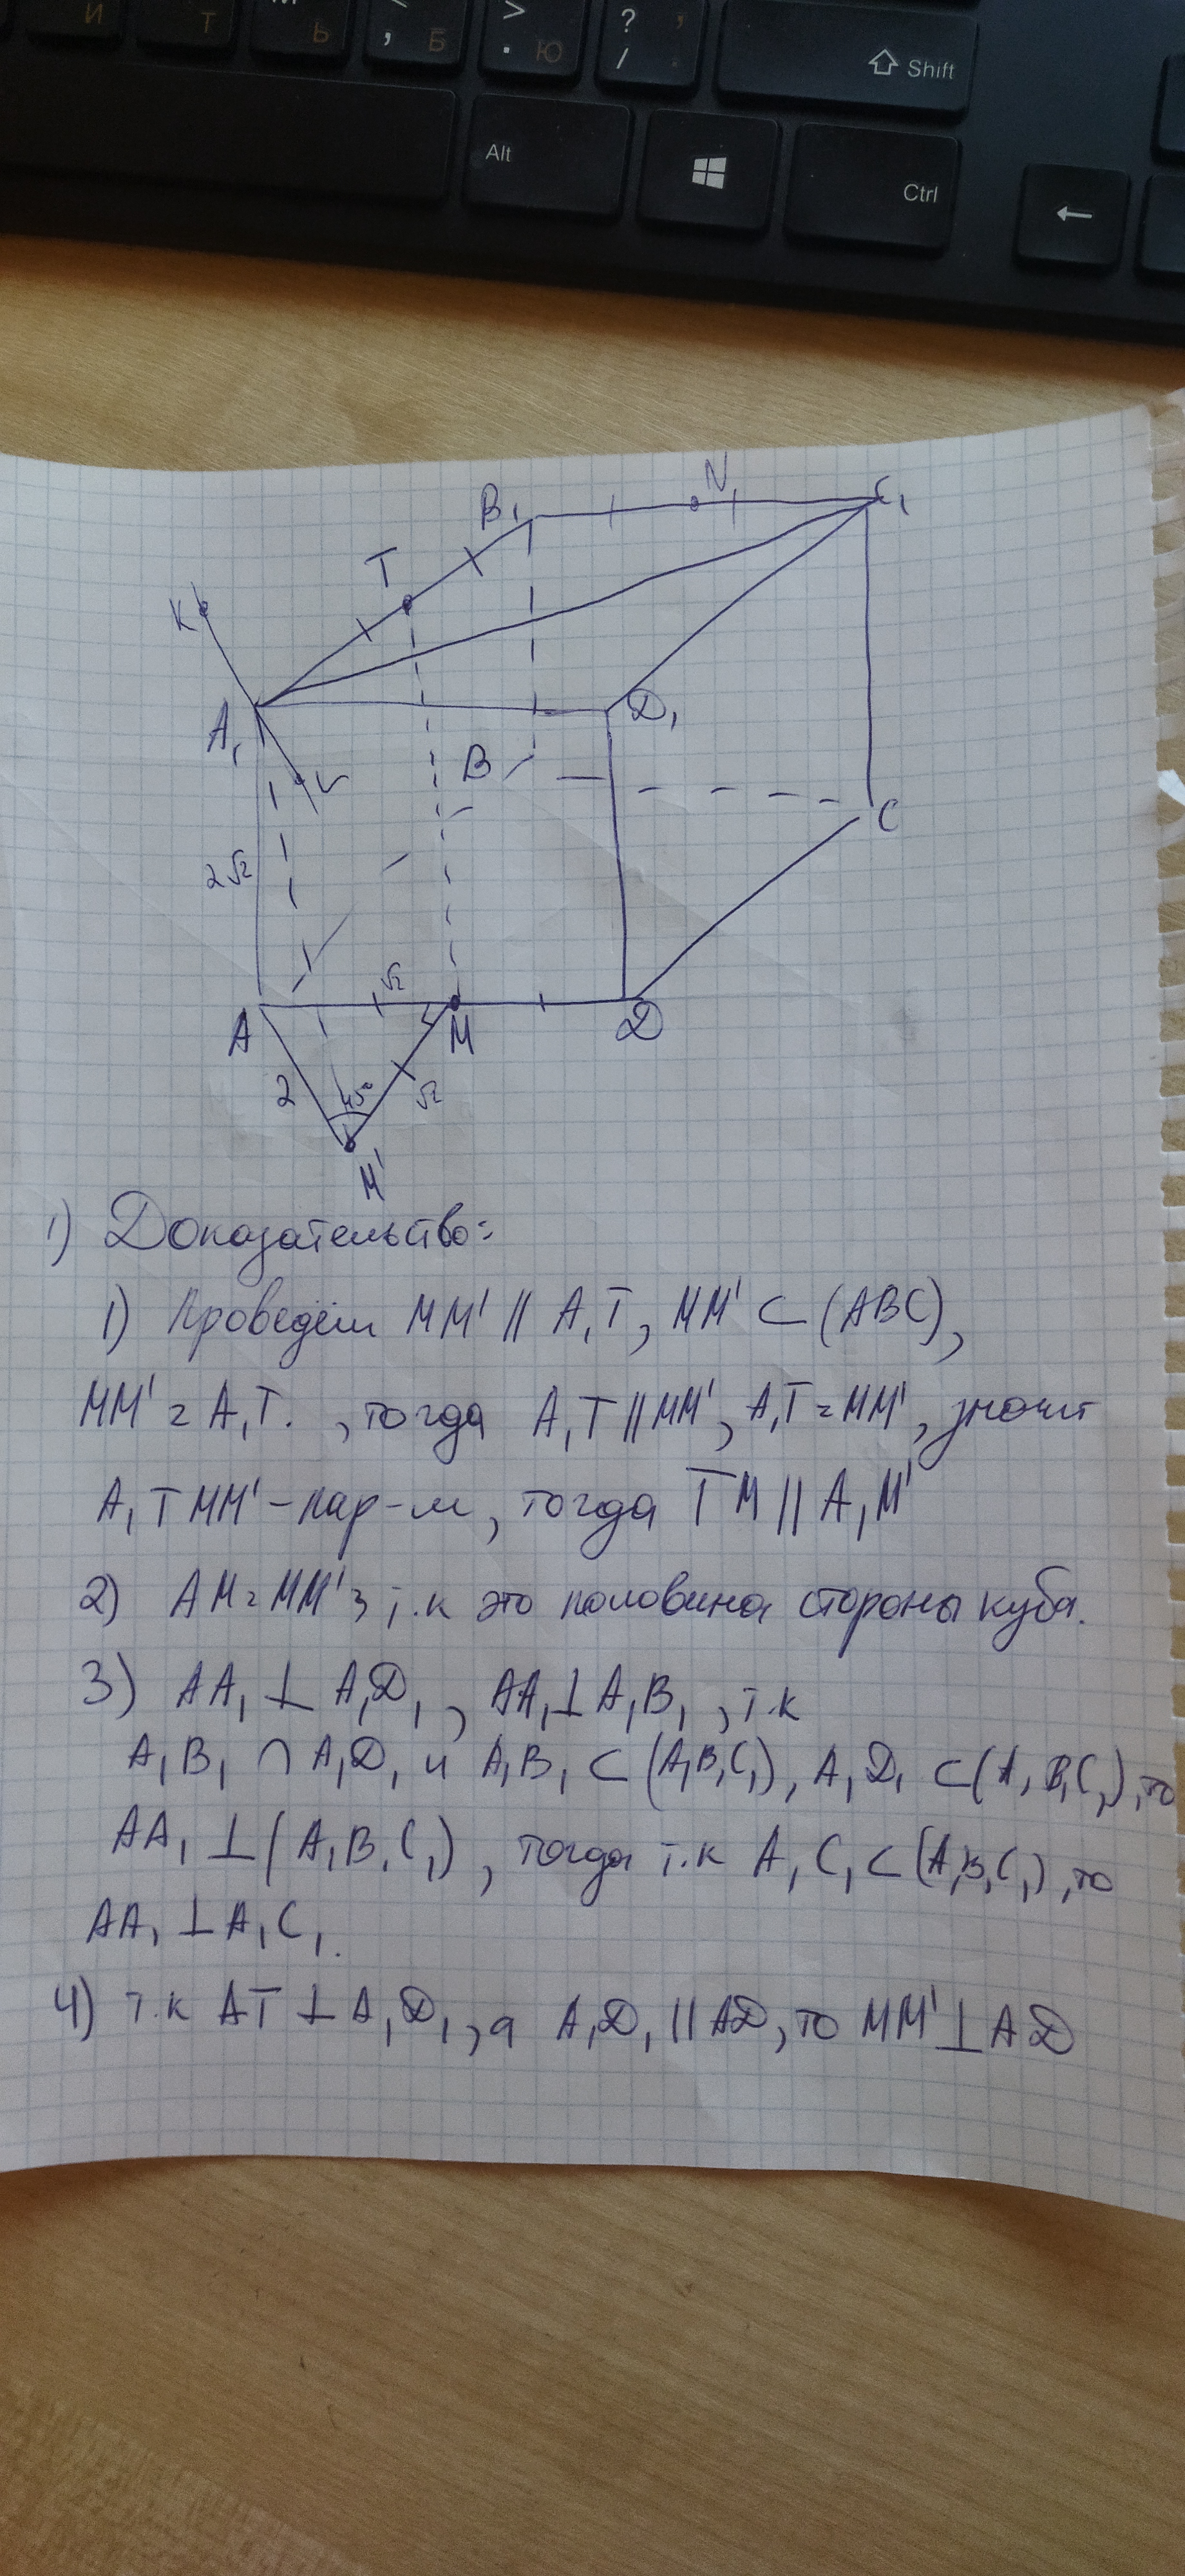 И
Т
Ь
, Б
> . Ю
? , /
Shift
Alt
Ctrl
←
N₁
C₁
B₁
T
K
A₁
D₁
B
C
2√2
√2
A
M
D
2
45°
√2
M'
1) Доказательство:
1) Проведём MM' || A₁T, MM' ⊂ (ABC),
MM' = A₁T. , тогда A₁T || MM', A₁T = MM', значит
A₁TMM' - пар-м, тогда TM || A₁M'
2) AM = MM', т.к это половина стороны куба.
3) AA₁ ⊥ A₁D₁, AA₁ ⊥ A₁B₁, т.к
A₁B₁ ∩ A₁D₁ и A₁B₁ ⊂ (A₁B₁C₁), A₁D₁ ⊂ (A₁B₁C₁), то
AA₁ ⊥ (A₁B₁C₁), тогда т.к A₁C₁ ⊂ (A₁B₁C₁), то
AA₁ ⊥ A₁C₁.
4) т.к AT ⊥ A₁D₁, а A₁D₁ || AD, то MM' ⊥ AD